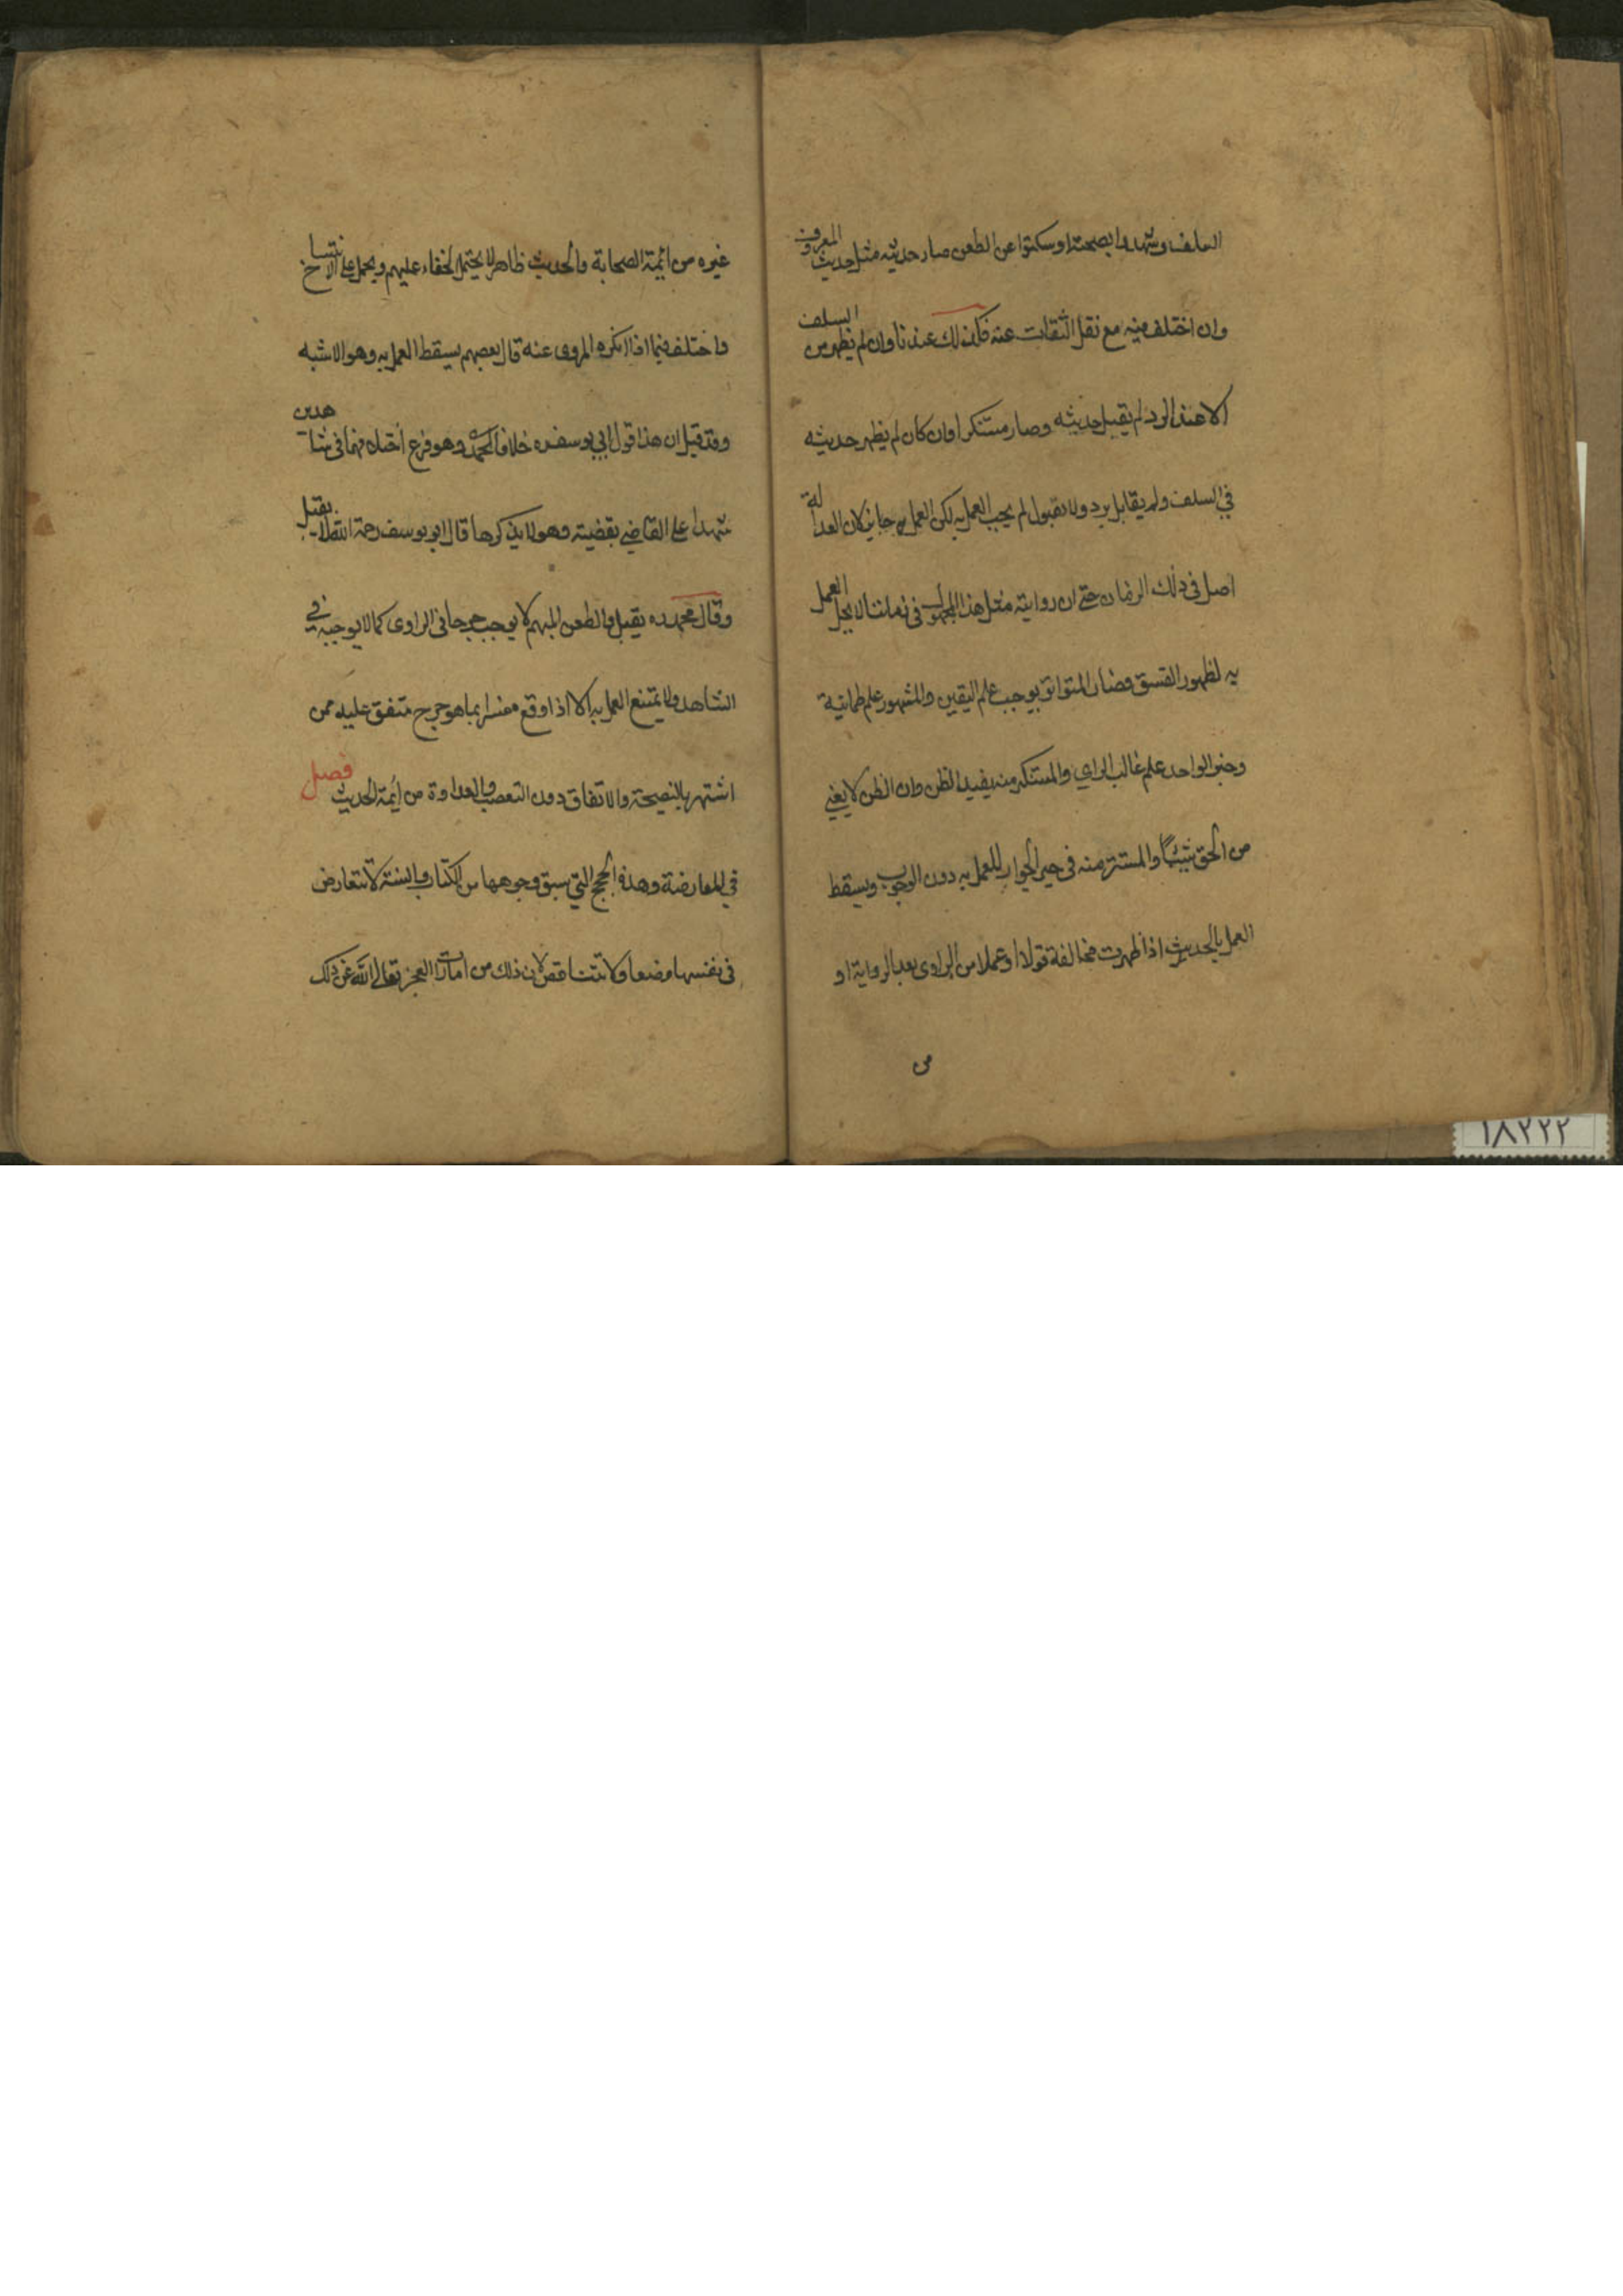 السلف وشهدوا بصحته او سكتوا عن الطعن صار حديثه مثل حديث المعروف
وان اختلف فيه مع نقل الثقات عنه فكذلك عندنا وان لم يظهر من السلف
الا عند الرد لم يقبل حديثه وصار مستنكرا وان كان لم يظهر حديثه
في السلف ولم يقابل برد ولا بقبول لم يجب العمل به لكن العمل به جايز لان العدالة
اصل في ذلك الزمان حتى ان رواية مثل هذا المجهول في زماننا لا يحل العمل
به لظهور الفسق فصار المتواتر يوجب علم اليقين والمشهور علم طمانية
وخبر الواحد علم غالب الراي والمستنكر منه يفيد الظن وان الظن لا يغني
من الحق شيئا والمستتر منه في حيز الجواز للعمل به دون الوجوب ويسقط
العمل بالحديث اذا ظهرت مخالفة قولا او عملا من الراوي بعد الرواية او
من
غيره من ائمة الصحابة والحديث ظاهر لا يحتمل الخفاء عليهم ويحمل على الانتساخ
واختلف فيما اذا انكره المروى عنه قال بعضهم يسقط العمل به وهو الاشبه
وقد قيل ان هذا قول ابي يوسف ره خلافا لمحمد ره وهو فرع اختلافهما في شاهدين
شهدا على القاضي بقضية وهو لا يذكرها قال ابو يوسف رحمة الله لا يقبل
وقال محمد ره يقبل والطعن المبهم لا يوجب جرحا في الراوى كما لا يوجبه في
الشاهد ولا يمتنع العمل به الا اذا وقع مفسرا بما هو جرح متفق عليه ممن
اشتهر بالنصيحة والاتفاق دون التعصب والعداوة من ائمة الحديث فصل
في المعارضة وهذه الحجج التي سبق وجوهها من الكتاب والسنة لا تتعارض
في نفسها وضعا ولا تتناقض لان ذلك من امارات العجز تعالى الله عن ذلك
١٨٢٢٢